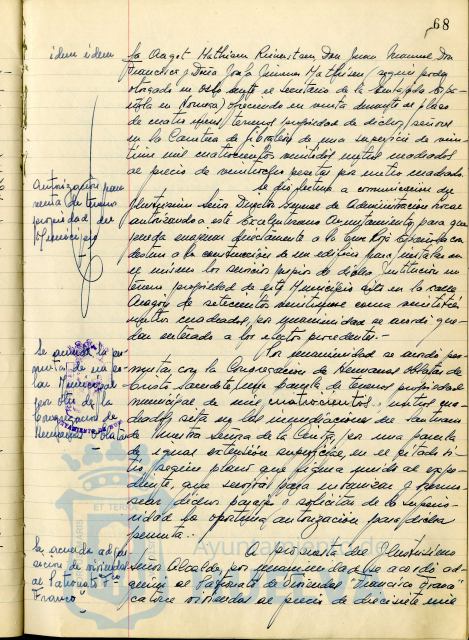 68
idem idem
la Aragot Mathieu Rivinstam, Don Juan Manuel, Don
Francisco y Doña Josefa Jimena Mathieu (según poder
otorgado en Oslo ante el Secretario de la Embajada Espa-
ñola en Noruega) ofreciendo en venta durante el plazo
de cuatro meses, terrenos propiedad de dichos señores
en la Carretera de Gibraleón de una superficie de vein-
tiun mil cuatrocientos veintidos metros cuadrados
al precio de veinticinco pesetas por metro cuadrado.
Autorización para
venta de terreno
propiedad del
Municipio
Se dió lectura a comunicación del
Ilustrísimo Señor Director General de Administración Local
autorizando a este Excelentísimo Ayuntamiento para que
pueda enajenar directamente a la Cruz Roja Española con
destino a la construcción de un edificio para instalar en
el mismo los servicios propios de dicha Institución un
terreno propiedad de este Municipio sito en la calle
Aragón de setecientos diecinueve coma veintitrés
metros cuadrados, por unanimidad se acordó que-
dar enterado a los efectos procedentes.
Se acuerda la per-
muta de un so-
lar Municipal
por otro de la
Congregación de
Hermanas Oblatas
Por unanimidad se acordó per-
mutar con la Congregación de Hermanas Oblatas de
Cristo Sacerdote, una parcela de terrenos propiedad
municipal de mil cuatrocientos metros cua-
drados sita en las inmediaciones del Santuario
de Nuestra Señora de la Cinta, por una parcela
de igual extensión superficie, en el citado si-
tio, según plano que figura unido al expe-
diente, que servirá para urbanizar y hermo-
sear dichos parajes y solicitar de la Superio-
ridad la oportuna autorización para dicha
permuta.
Se acuerda adqui-
sición de viviendas
al Patronato "Fco.
Franco"
A propuesta del Ilustrísimo
Señor Alcalde, por unanimidad se acordó ad-
quirir al Patronato de Viviendas "Francisco Franco"
catorce viviendas al precio de diecisiete mil
Ayuntamiento de
HUELVA